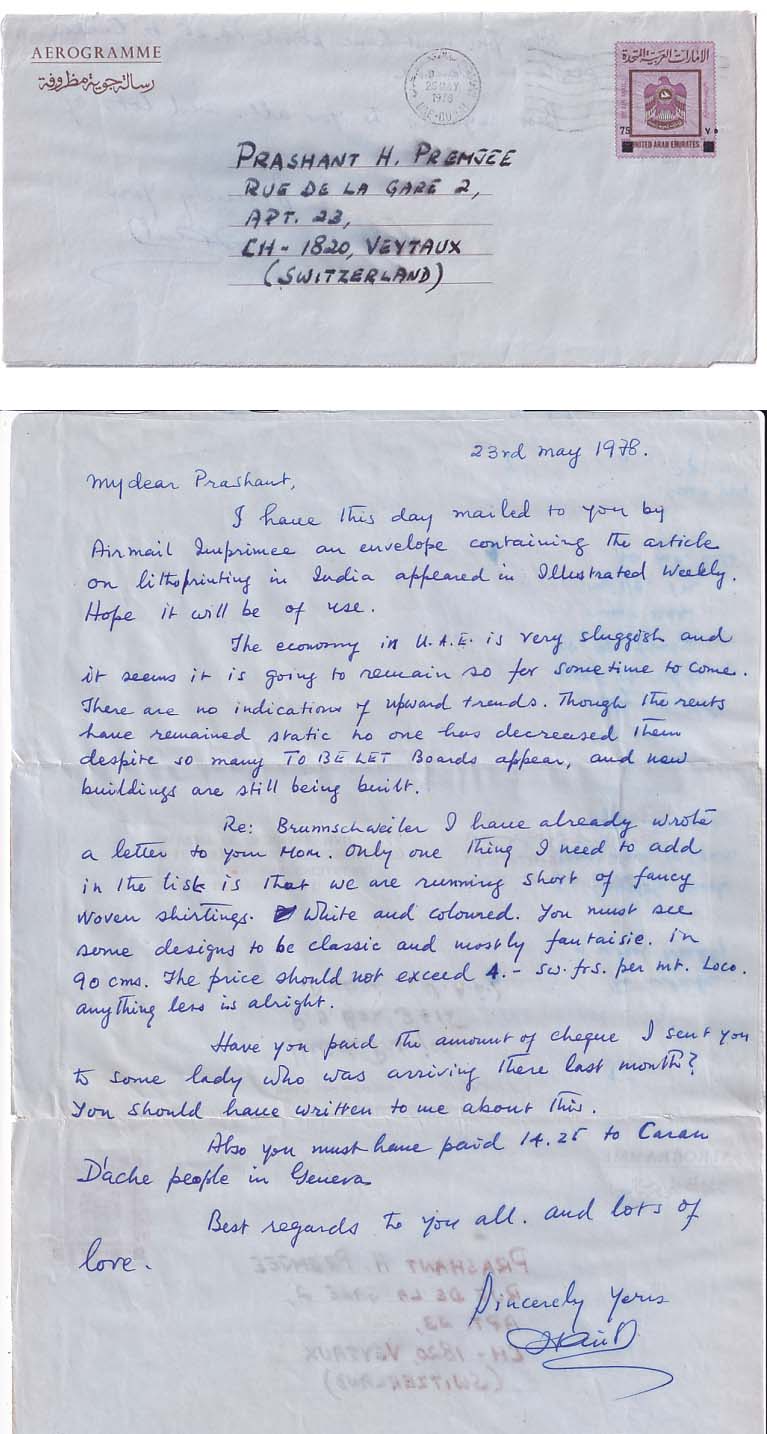 AEROGRAMME
رسالة جوية مظروفة
25 MAY
1978
الامارات العربية المتحدة
75 ٧٥
UNITED ARAB EMIRATES
PRASHANT H. PREMJEE
RUE DE LA GARE 2,
APT. 23,
CH- 1820, VEYTAUX
(SWITZERLAND)
23rd may 1978.
My dear Prashant,
I have this day mailed to you by
Airmail Imprimee an envelope containing the article
on lithoprinting in India appeared in Illustrated Weekly.
Hope it will be of use.
The economy in U.A.E. is very sluggish and
it seems it is going to remain so for sometime to come.
There are no indications of upward trends. Though the rents
have remained static no one has decreased them
despite so many TO BE LET Boards appear, and new
buildings are still being built.
Re: Brunnschweiler I have already wrote
a letter to your Mom. Only one thing I need to add
in the list is that we are running short of fancy
woven shirtings. White and coloured. You must see
some designs to be classic and mostly fantaisie. in
90 cms. The price should not exceed 4.- sw. frs. per mt. Loco.
anything less is alright.
Have you paid the amount of cheque I sent you
to some lady who was arriving there last month?
You should have written to me about this.
Also you must have paid 14.25 to Caran
D'ache people in Geneva
Best regards to you all. and lots of
love.
Sincerely yours